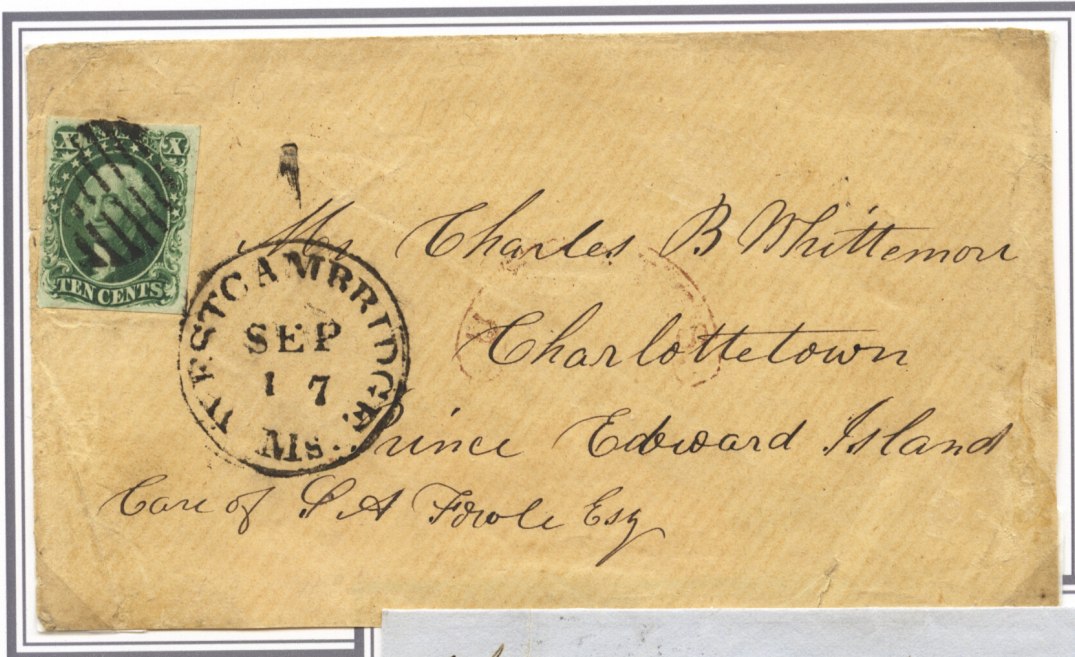 X X
TEN CENTS
WEST CAMBRIDGE
SEP
17
Ms.
Mr Charles B Whittemore
Charlottetown
Prince Edward Island
Care of S A Fowle Esq